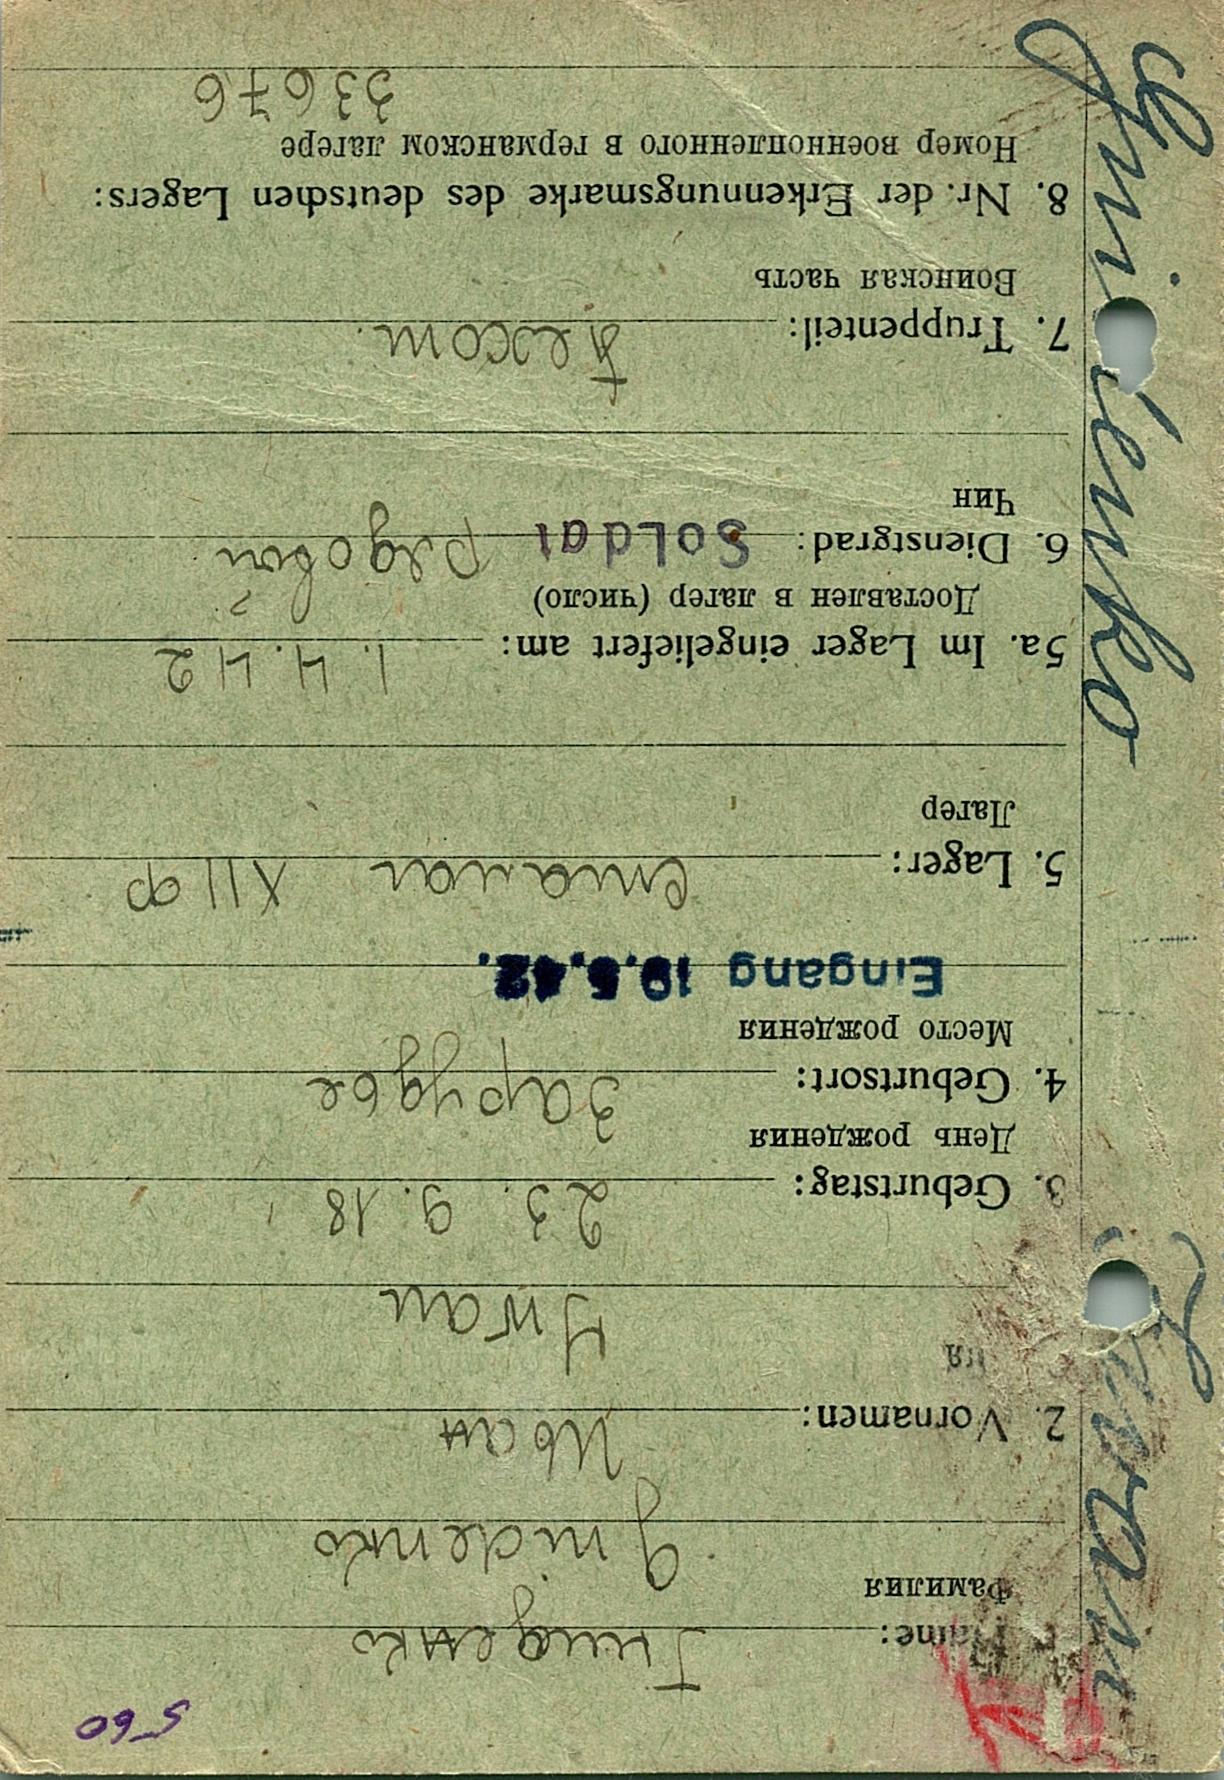 560
Name: Гниденко
Фамилия
Gnidenko
2. Vornamen: Иван
мя
Iwan
3. Geburtstag: 23. 9. 18
День рождения
4. Geburtsort: Зарудье
Место рождения
Eingang 19.5.42.
5. Lager: Шталаг XII ф
Лагер
5a. Im Lager eingeliefert am: 1. 4. 42
Доставлен в лагер (число)
6. Dienstgrad: Soldat рядовой
Чин
7. Truppenteil: пехот.
Воинская часть
8. Nr. der Erkennungsmarke des deutschen Lagers:
Номер военнопленного в германском лагере
33676
Gnidenko Iwan